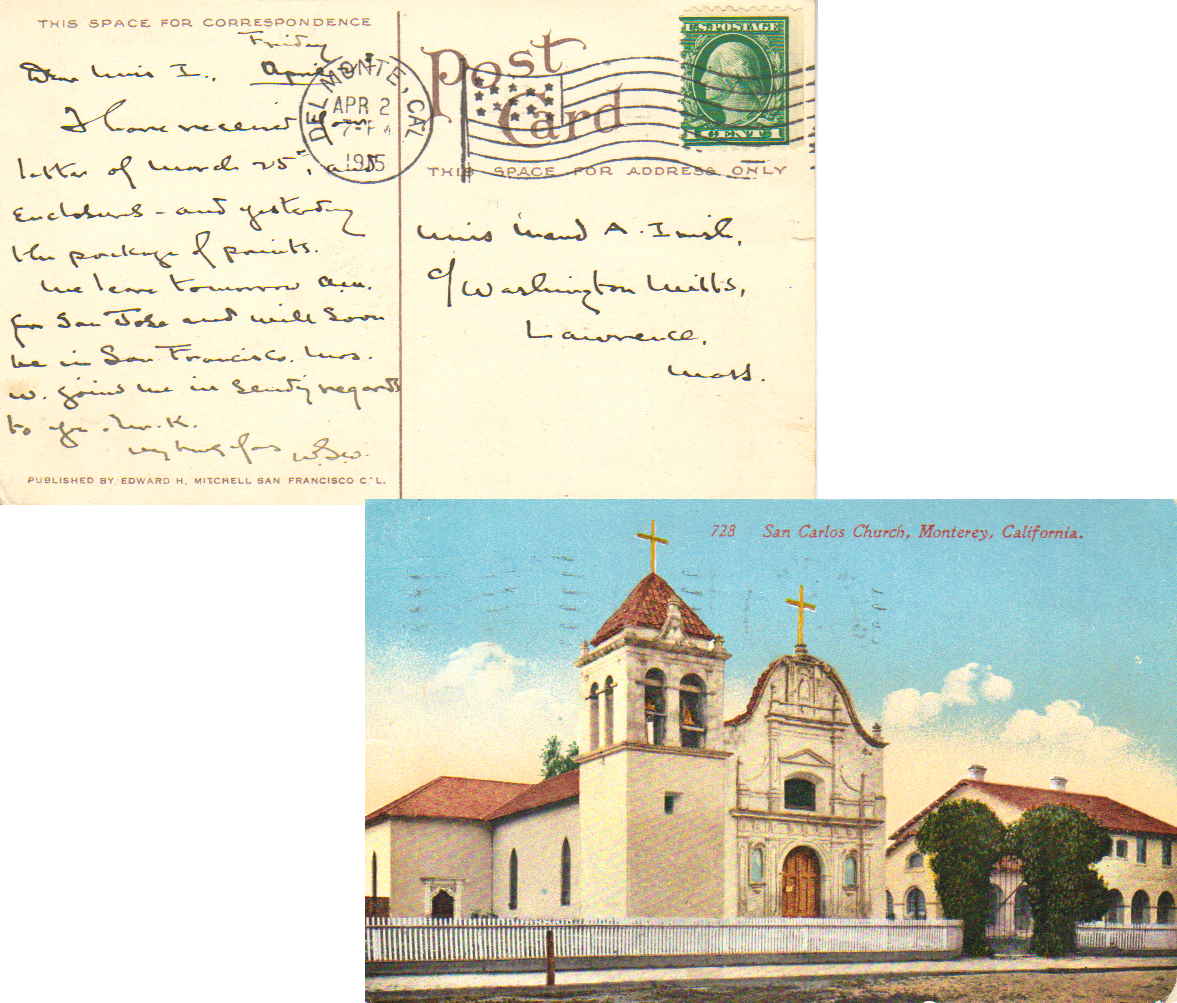 THIS SPACE FOR CORRESPONDENCE
Friday
Dear Miss I., April 2
I have received your
letter of March 25th, and
enclosures - and yesterday
the package of prints.
We leave tomorrow a.m.
for San Jose and will soon
be in San Francisco. Mrs.
W. joins me in sending regards
to you. Mr. K.
W.S.W.
PUBLISHED BY EDWARD H. MITCHELL SAN FRANCISCO CAL.
Post
Card
DEL MONTE, CAL
APR 2
1915
U.S. POSTAGE
1 CENT 1
THIS SPACE FOR ADDRESS ONLY
Miss Maud A. Irish,
c/ Washington Mills,
Lawrence,
Mass.
728 San Carlos Church, Monterey, California.